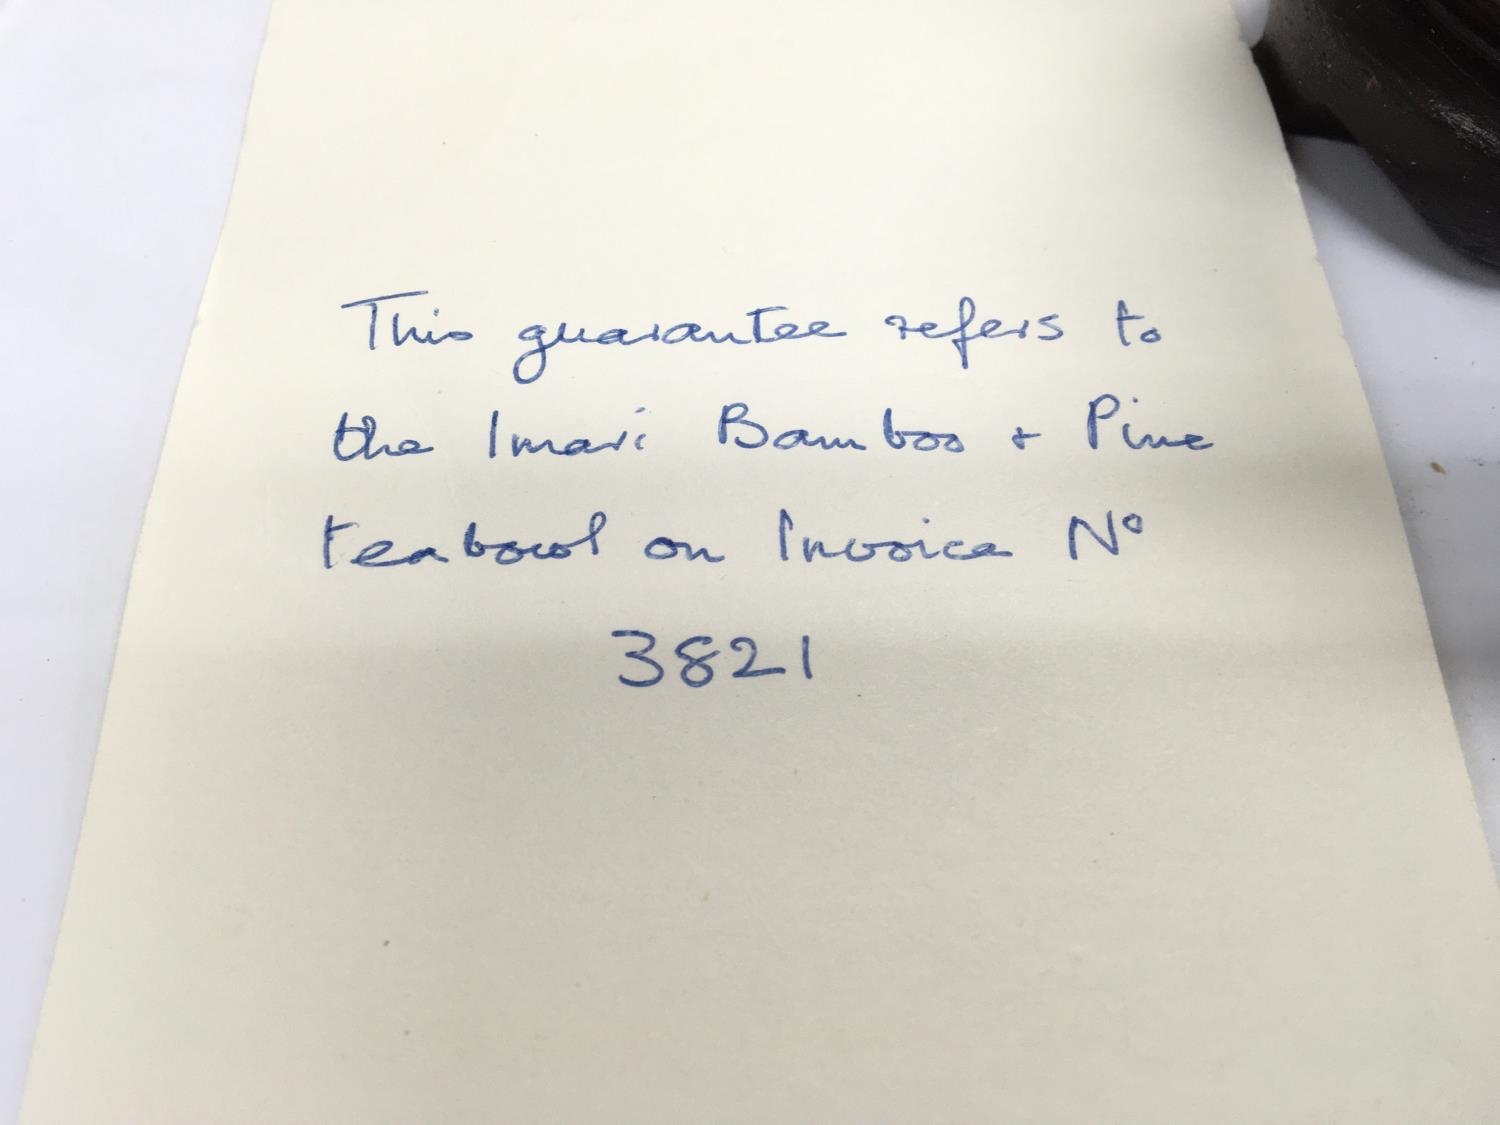 This guarantee refers to
the Imari Bamboo + Pine
teabowl on Invoice Nº
3821